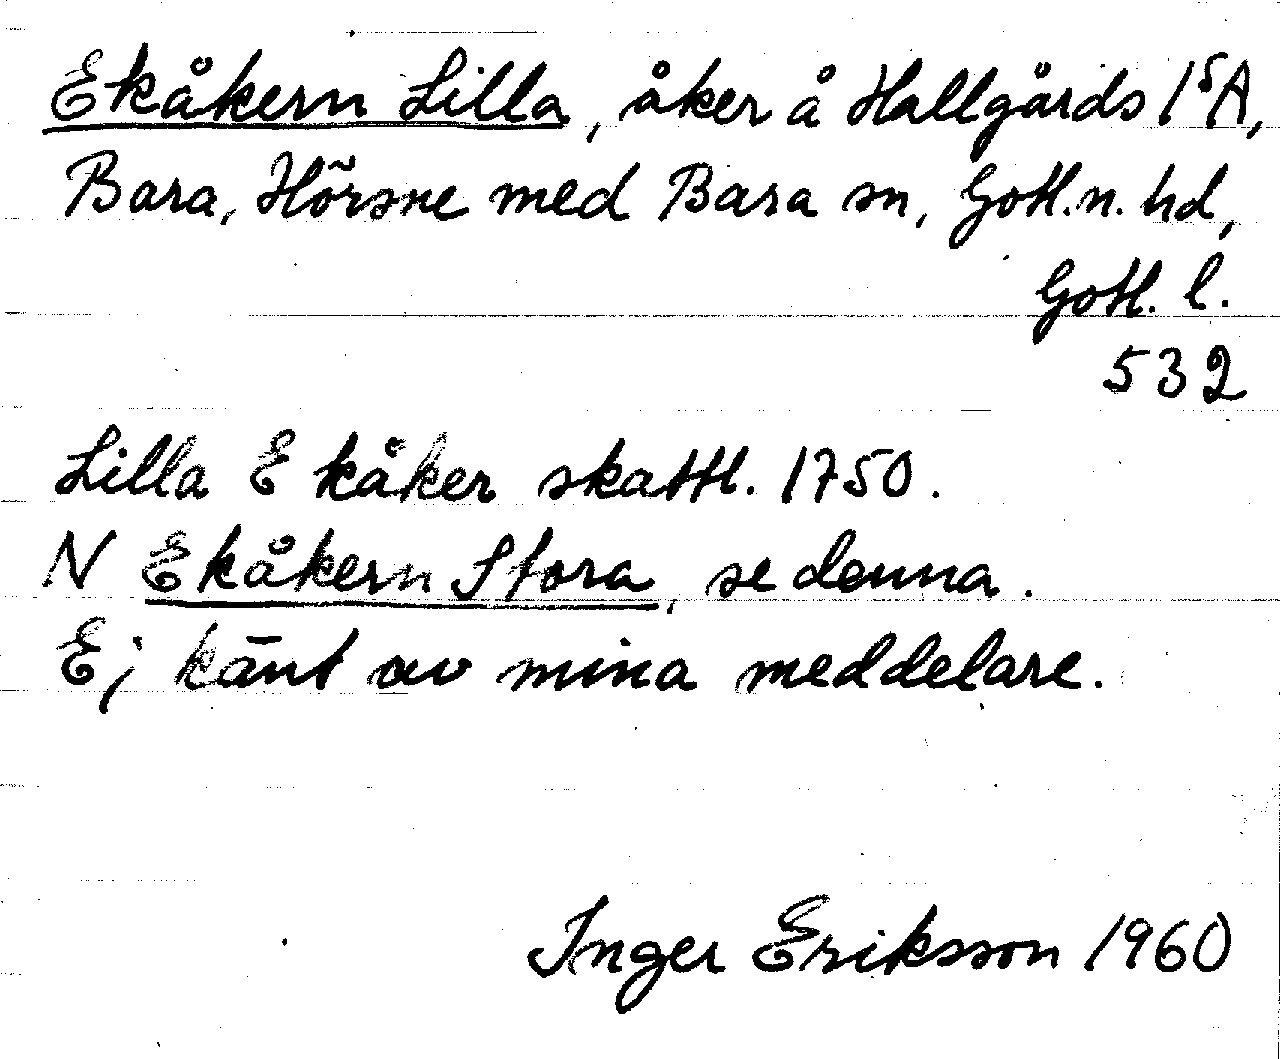 Ekåkern Lilla, åker å Hallgårds 1⁵A,
Bara, Hörsne med Bara sn, Gotl.n. hd,
Gotl. l.
532
Lilla Ekåker skattl. 1750.
N Ekåkern Stora, se denna.
Ej känt av mina meddelare.
Inger Eriksson 1960